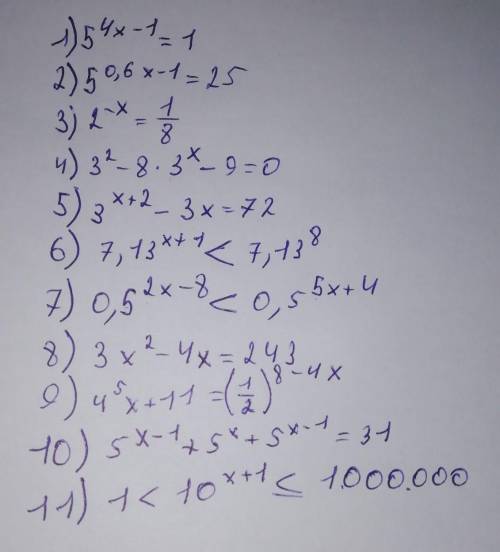 1) 5^{4x-1} = 1
2) 5^{0,6x-1} = 25
3) 2^{-x} = \frac{1}{8}
4) 3^2 - 8 \cdot 3^x - 9 = 0
5) 3^{x+2} - 3x = 72
6) 7,13^{x+1} < 7,13^8
7) 0,5^{2x-8} < 0,5^{5x+4}
8) 3x^2 - 4x = 243
9) 4^5x + 11 = (\frac{1}{2})^{8-4x}
10) 5^{x-1} + 5^x + 5^{x-1} = 31
11) 1 < 10^{x+1} ≤ 1.000.000